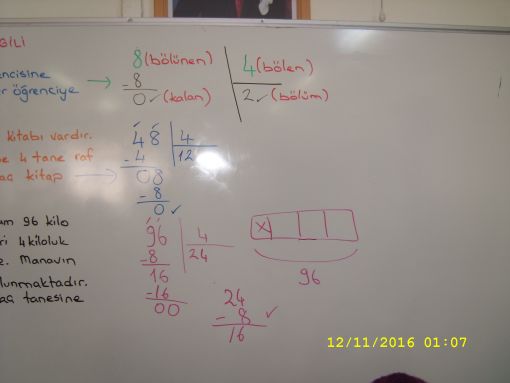 GİLİ
encisine
öğrenciye
→
8 (bölünen)
4 (bölen)
- 8
0 ✓ (kalan)
2 ✓ (bölüm)
kitabı vardır.
4 tane raf
kitap →
48
4
- 4
12
08
- 8
0 ✓
96 kilo
4 kiloluk
Manavın
tanesine
96
4
- 8
24
16
- 16
00
x
96
24
- 8 ✓
16
12/11/2016 01:07